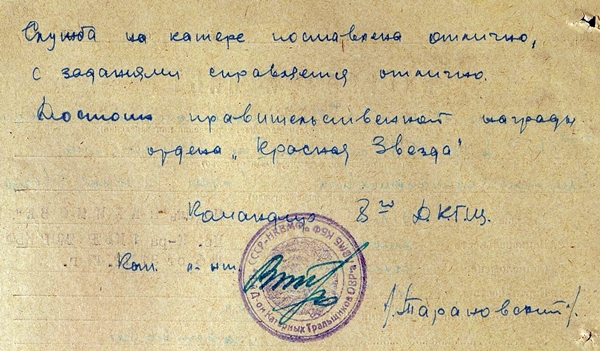 Служба на катере поставлена отлично,
с заданиями справляется отлично.
Достоин правительственной награды
ордена „Красная Звезда"
Командир 3го ДКТЩ.
Кап. л-нт
/Тарановский/.
СССР-НКВМФ
Д-он Катерных Тральщиков ОВР